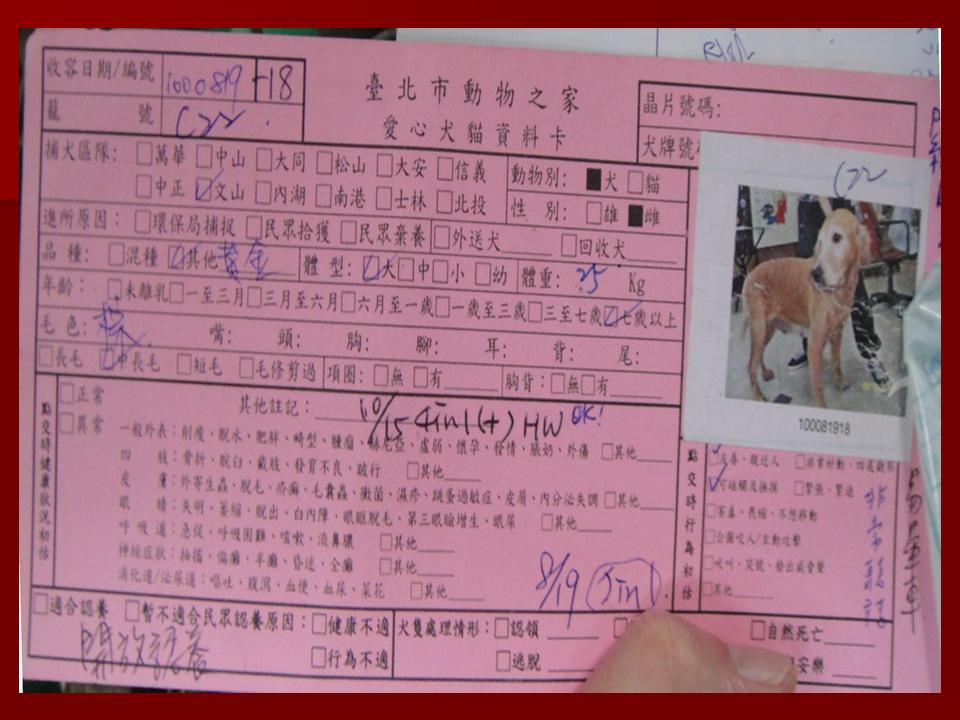 收容日期/編號 1000819 -18
籠 號 C22.
臺北市動物之家
愛心犬貓資料卡
晶片號碼:
犬牌號
捕犬區隊: □萬華 □中山 □大同 □松山 □大安 □信義
□中正 ☑文山 □內湖 □南港 □士林 □北投
動物別: ■犬 □貓
性 別: □雄 ■雌
進所原因: □環保局捕捉 □民眾拾獲 □民眾棄養 □外送犬 □回收犬
品 種: □混種 ☑其他 黃金 體 型: ☑大 □中 □小 □幼 體重: 25 Kg
年齡: □未離乳 □一至三月 □三月至六月 □六月至一歲 □一歲至三歲 □三至七歲 ☑七歲以上
毛 色: 嘴: 頭: 胸: 腳: 耳: 背: 尾:
□長毛 ☑中長毛 □短毛 □毛修剪過 項圈: □無 □有 胸背: □無 □有
C22
100081918
點交時健康狀況初估
□正常
□異常
其他註記: 10/15 4in1(+) HW OK!
一般外表:削瘦、脫水、肥胖、畸型、腫瘤、赫尼亞、虛弱、懷孕、發情、脹奶、外傷 □其他
四 肢:骨折、脫臼、截肢、發育不良、跛行 □其他
皮 膚:外寄生蟲、脫毛、疥癬、毛囊蟲、黴菌、濕疹、跳蚤過敏症、皮屑、內分泌失調 □其他
眼 睛:失明、萎縮、脫出、白內障、眼眶脫毛、第三眼瞼增生、眼屎 □其他
呼 吸 道:急促、呼吸困難、咳嗽、流鼻膿 □其他
神經症狀:抽搐、偏癱、半癱、昏迷、全癱 □其他
消化道/泌尿道:嘔吐、腹瀉、血便、血尿、菜花 □其他
8/19 5in1.
點交時行為初估
友善、親近人 □非常好動、四處觀察
☑可碰觸及撫摸 □緊張、緊迫
□害羞、畏縮、不想移動
□企圖咬人/主動攻擊
□吠叫、哭號、發出威脅聲
□其他
非常親人
□適合認養 □暫不適合民眾認養原因: □健康不適
□行為不適
開放認養
犬隻處理情形: □認領 □自然死亡
□逃脫 安樂